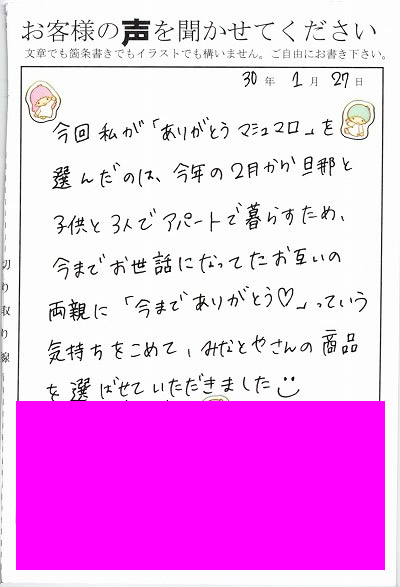 お客様の声を聞かせてください
文章でも箇条書きでもイラストでも構いません。ご自由にお書き下さい。
30年 1月 27日
今回私が「ありがとうマシュマロ」を
選んだのは、今年の2月から旦那と
子供と3人でアパートで暮らすため、
今までお世話になってたお互いの
両親に「今までありがとう♡」っていう
気持ちをこめて、みなとやさんの商品
を選ばせていただきました
切り取り線